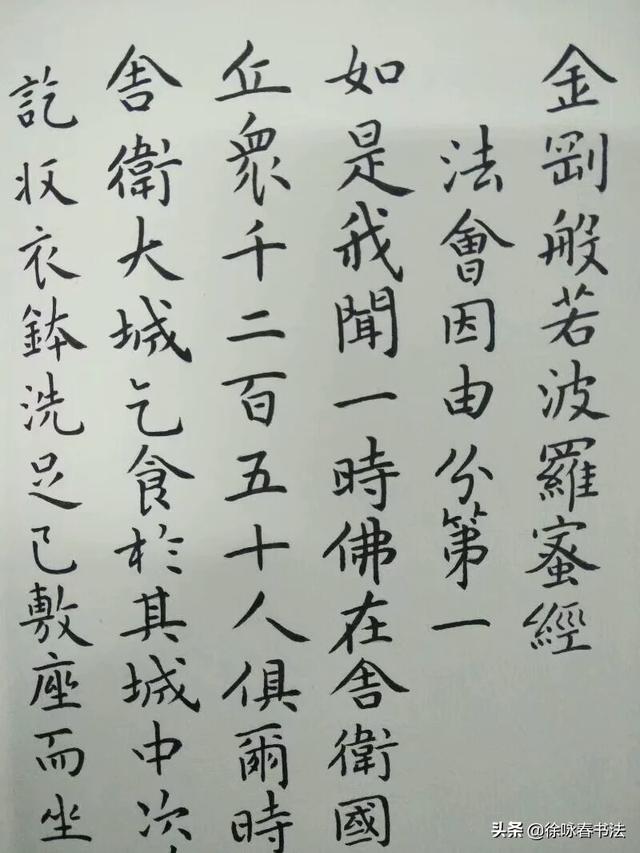 金剛般若波羅蜜經
法會因由分第一
如是我聞一時佛在舎衛國
丘衆千二百五十人俱爾時
舎衛大城乞食於其城中次
訖収衣鉢洗足已敷座而坐
头条 @徐咏春书法